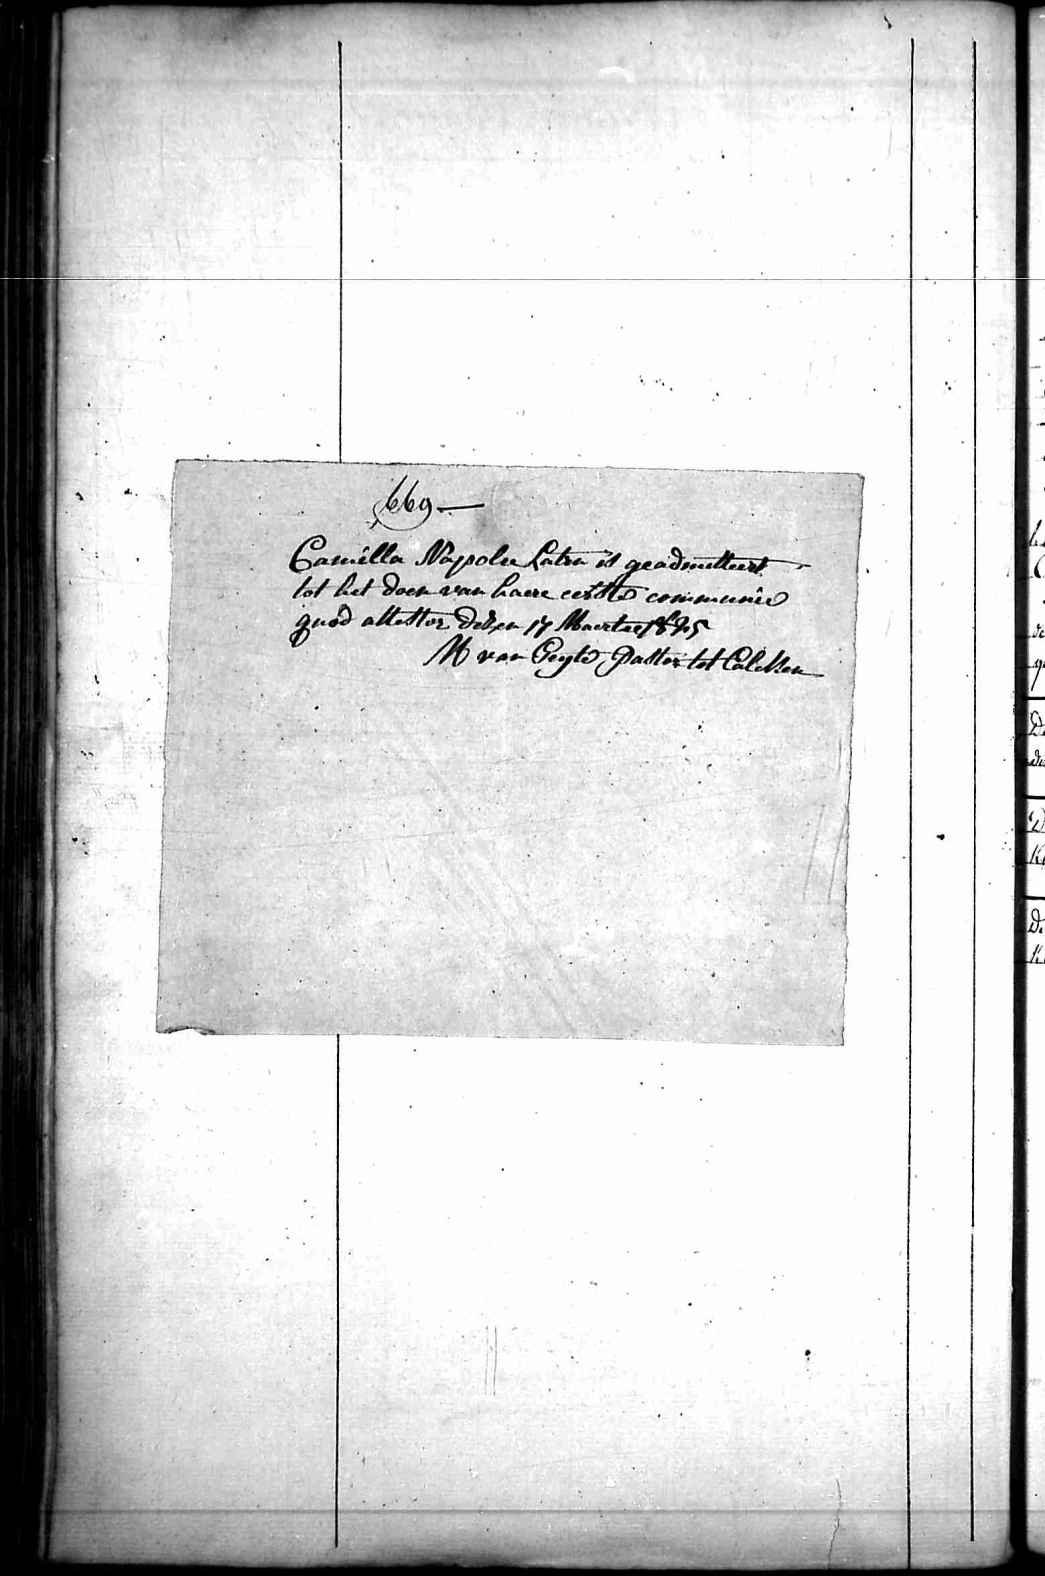 669 —
Camilla Napolee Laten is geadmitteert
tot het doen van haere eerste communie
quod attestor desen 17 Maerte 1825
M van Geyte Pastor tot Calcken